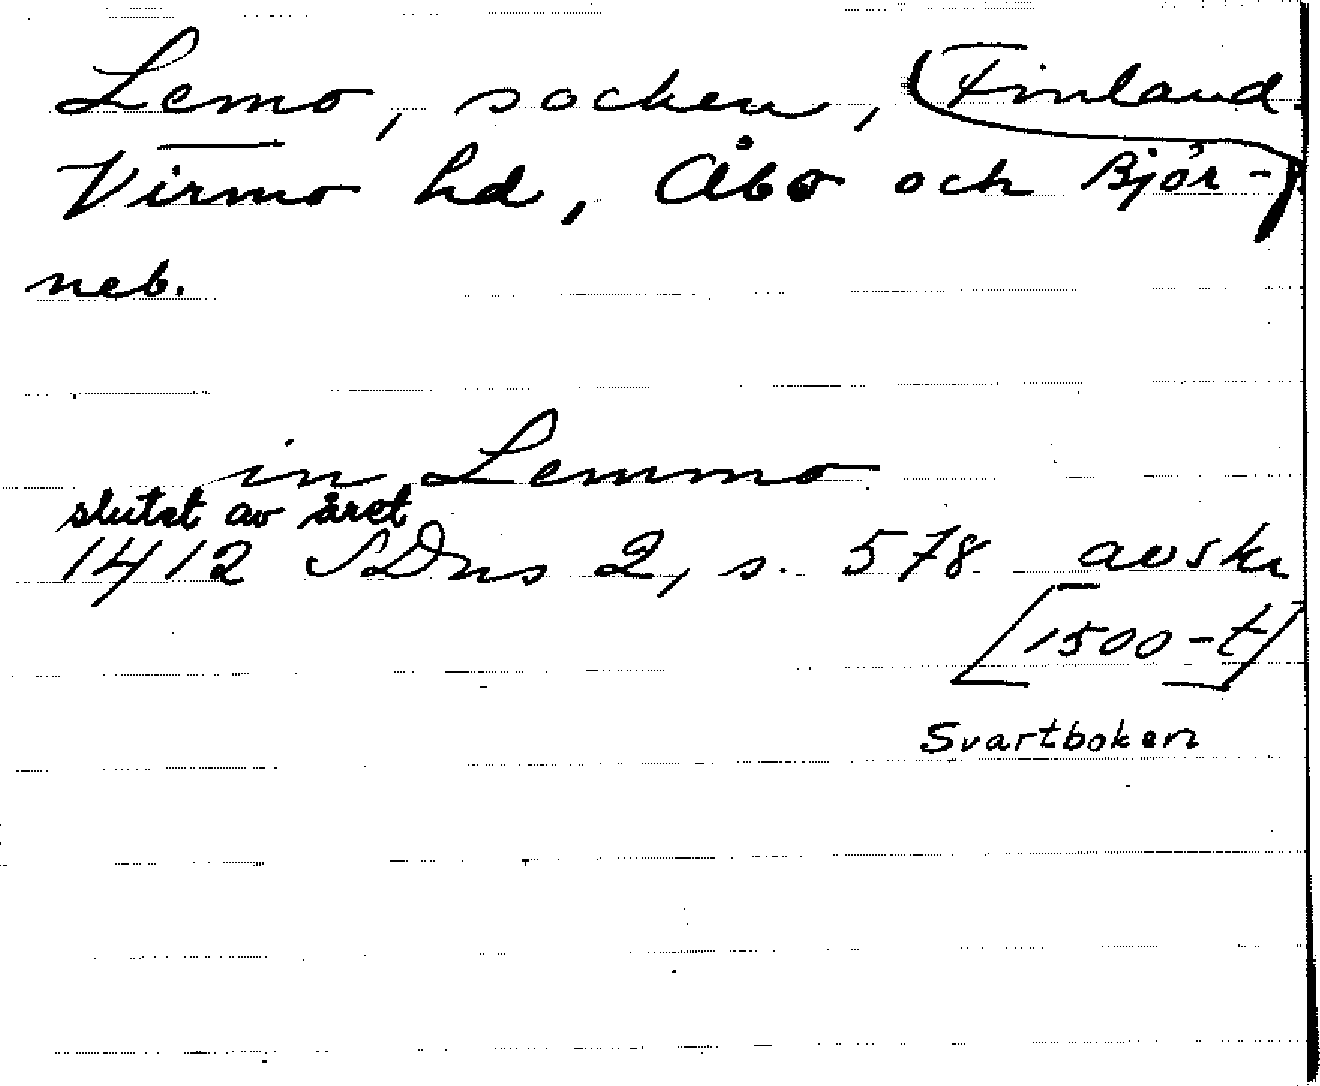 Lemo, socken, Finland
Virmo hd, Åbo och Björ-
neb.
in Lemmo
slutet av året
1412 SDns 2, s. 578 avskr
[1500-t]
Svartboken